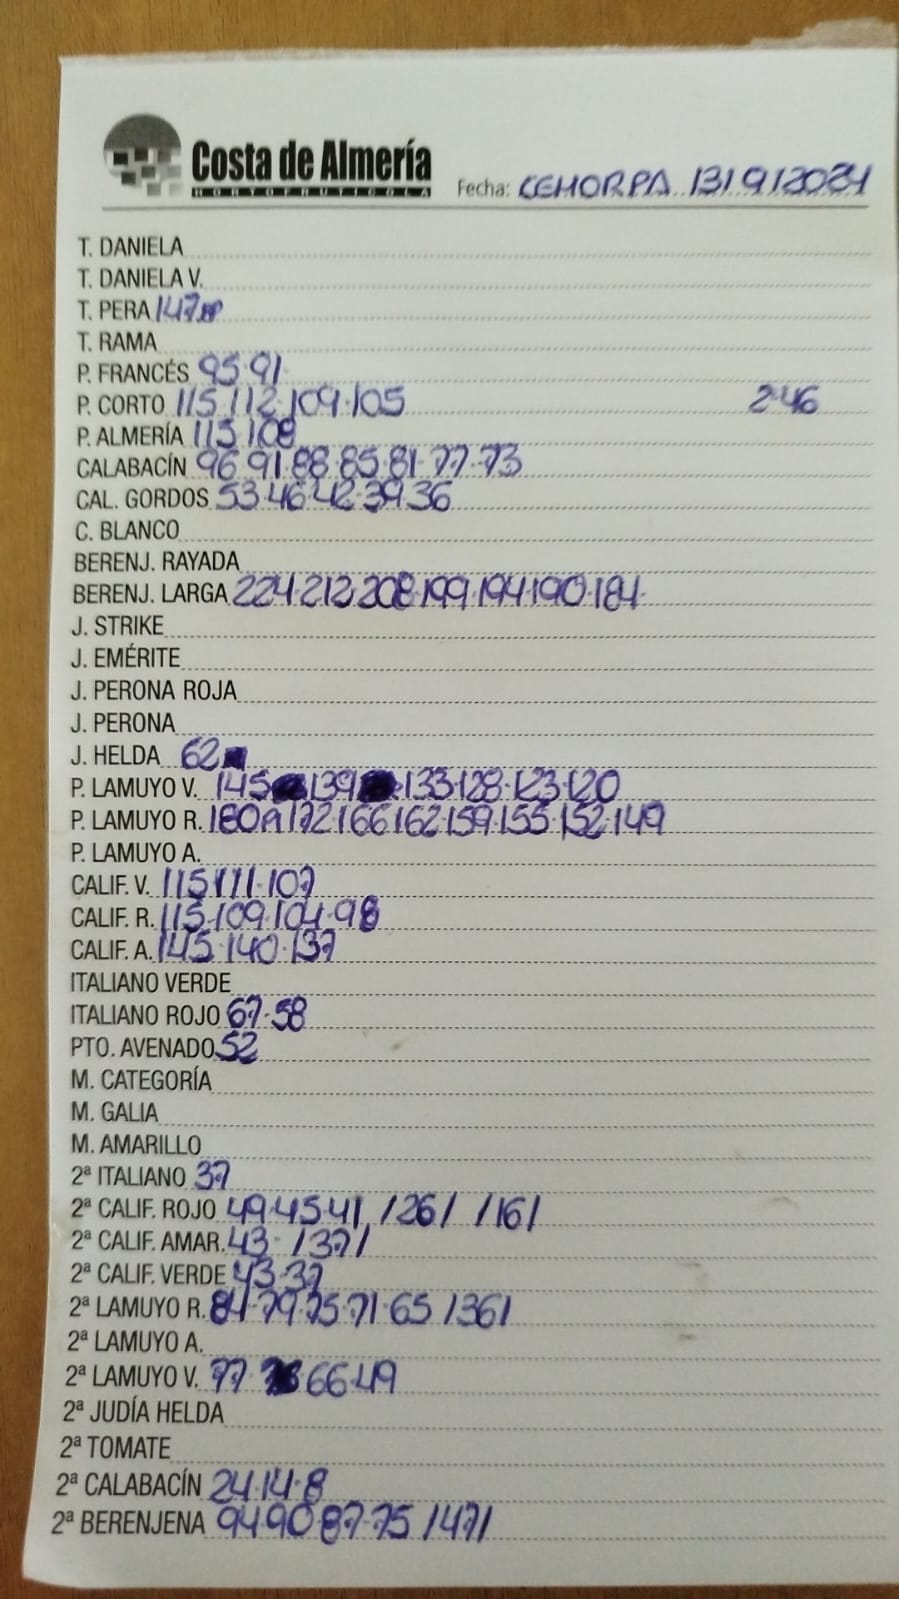 Costa de Almería
HORTOFRUTICOLA
Fecha: CEHORPA 13/9/2024
T. DANIELA
T. DANIELA V.
T. PERA 147
T. RAMA
P. FRANCÉS 95·91
P. CORTO 115·112·109·105 2·46
P. ALMERÍA 115·108
CALABACÍN 96·91·88·85·81·77·73
CAL. GORDOS 53·46·42·39·36
C. BLANCO
BERENJ. RAYADA
BERENJ. LARGA 224·212·208·199·194·190·184
J. STRIKE
J. EMÉRITE
J. PERONA ROJA
J. PERONA
J. HELDA 62
P. LAMUYO V. 145 139 133·128·123·120
P. LAMUYO R. 180 172·166·162·159·155·152·149
P. LAMUYO A.
CALIF. V. 115·111·107
CALIF. R. 115·109·104·98
CALIF. A. 145·140·137
ITALIANO VERDE
ITALIANO ROJO 67·58
PTO. AVENADO 52
M. CATEGORÍA
M. GALIA
M. AMARILLO
2ª ITALIANO 37
2ª CALIF. ROJO 49·45·41 /26/ /16/
2ª CALIF. AMAR. 43· /37/
2ª CALIF. VERDE 43·37
2ª LAMUYO R. 84·79·75·71·65 /36/
2ª LAMUYO A.
2ª LAMUYO V. 77 66·49
2ª JUDÍA HELDA
2ª TOMATE
2ª CALABACÍN 24·14·8
2ª BERENJENA 94·90·87·75 /47/